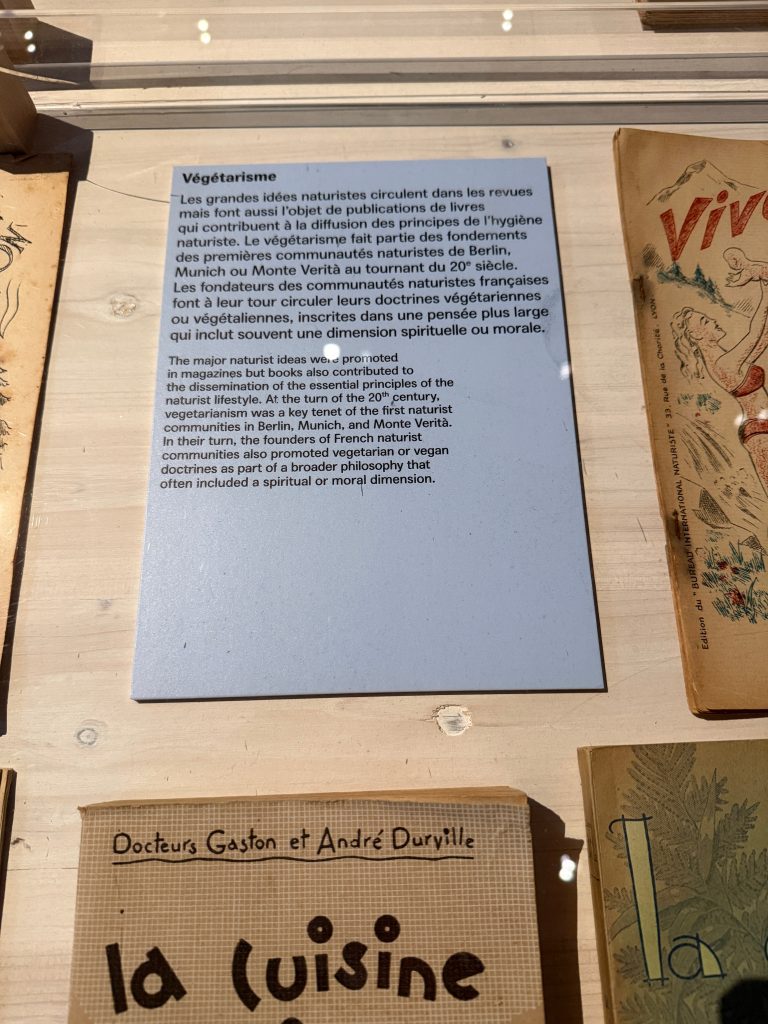 Végétarisme
Les grandes idées naturistes circulent dans les revues
mais font aussi l'objet de publications de livres
qui contribuent à la diffusion des principes de l'hygiène
naturiste. Le végétarisme fait partie des fondements
des premières communautés naturistes de Berlin,
Munich ou Monte Verità au tournant du 20e siècle.
Les fondateurs des communautés naturistes françaises
font à leur tour circuler leurs doctrines végétariennes
ou végétaliennes, inscrites dans une pensée plus large
qui inclut souvent une dimension spirituelle ou morale.
The major naturist ideas were promoted
in magazines but books also contributed to
the dissemination of the essential principles of the
naturist lifestyle. At the turn of the 20th century,
vegetarianism was a key tenet of the first naturist
communities in Berlin, Munich, and Monte Verità.
In their turn, the founders of French naturist
communities also promoted vegetarian or vegan
doctrines as part of a broader philosophy that
often included a spiritual or moral dimension.
Edition du "BUREAU INTERNATIONAL NATURISTE" 33, Rue de la Charité LYON
Docteurs Gaston et André Durville
la cuisine
la